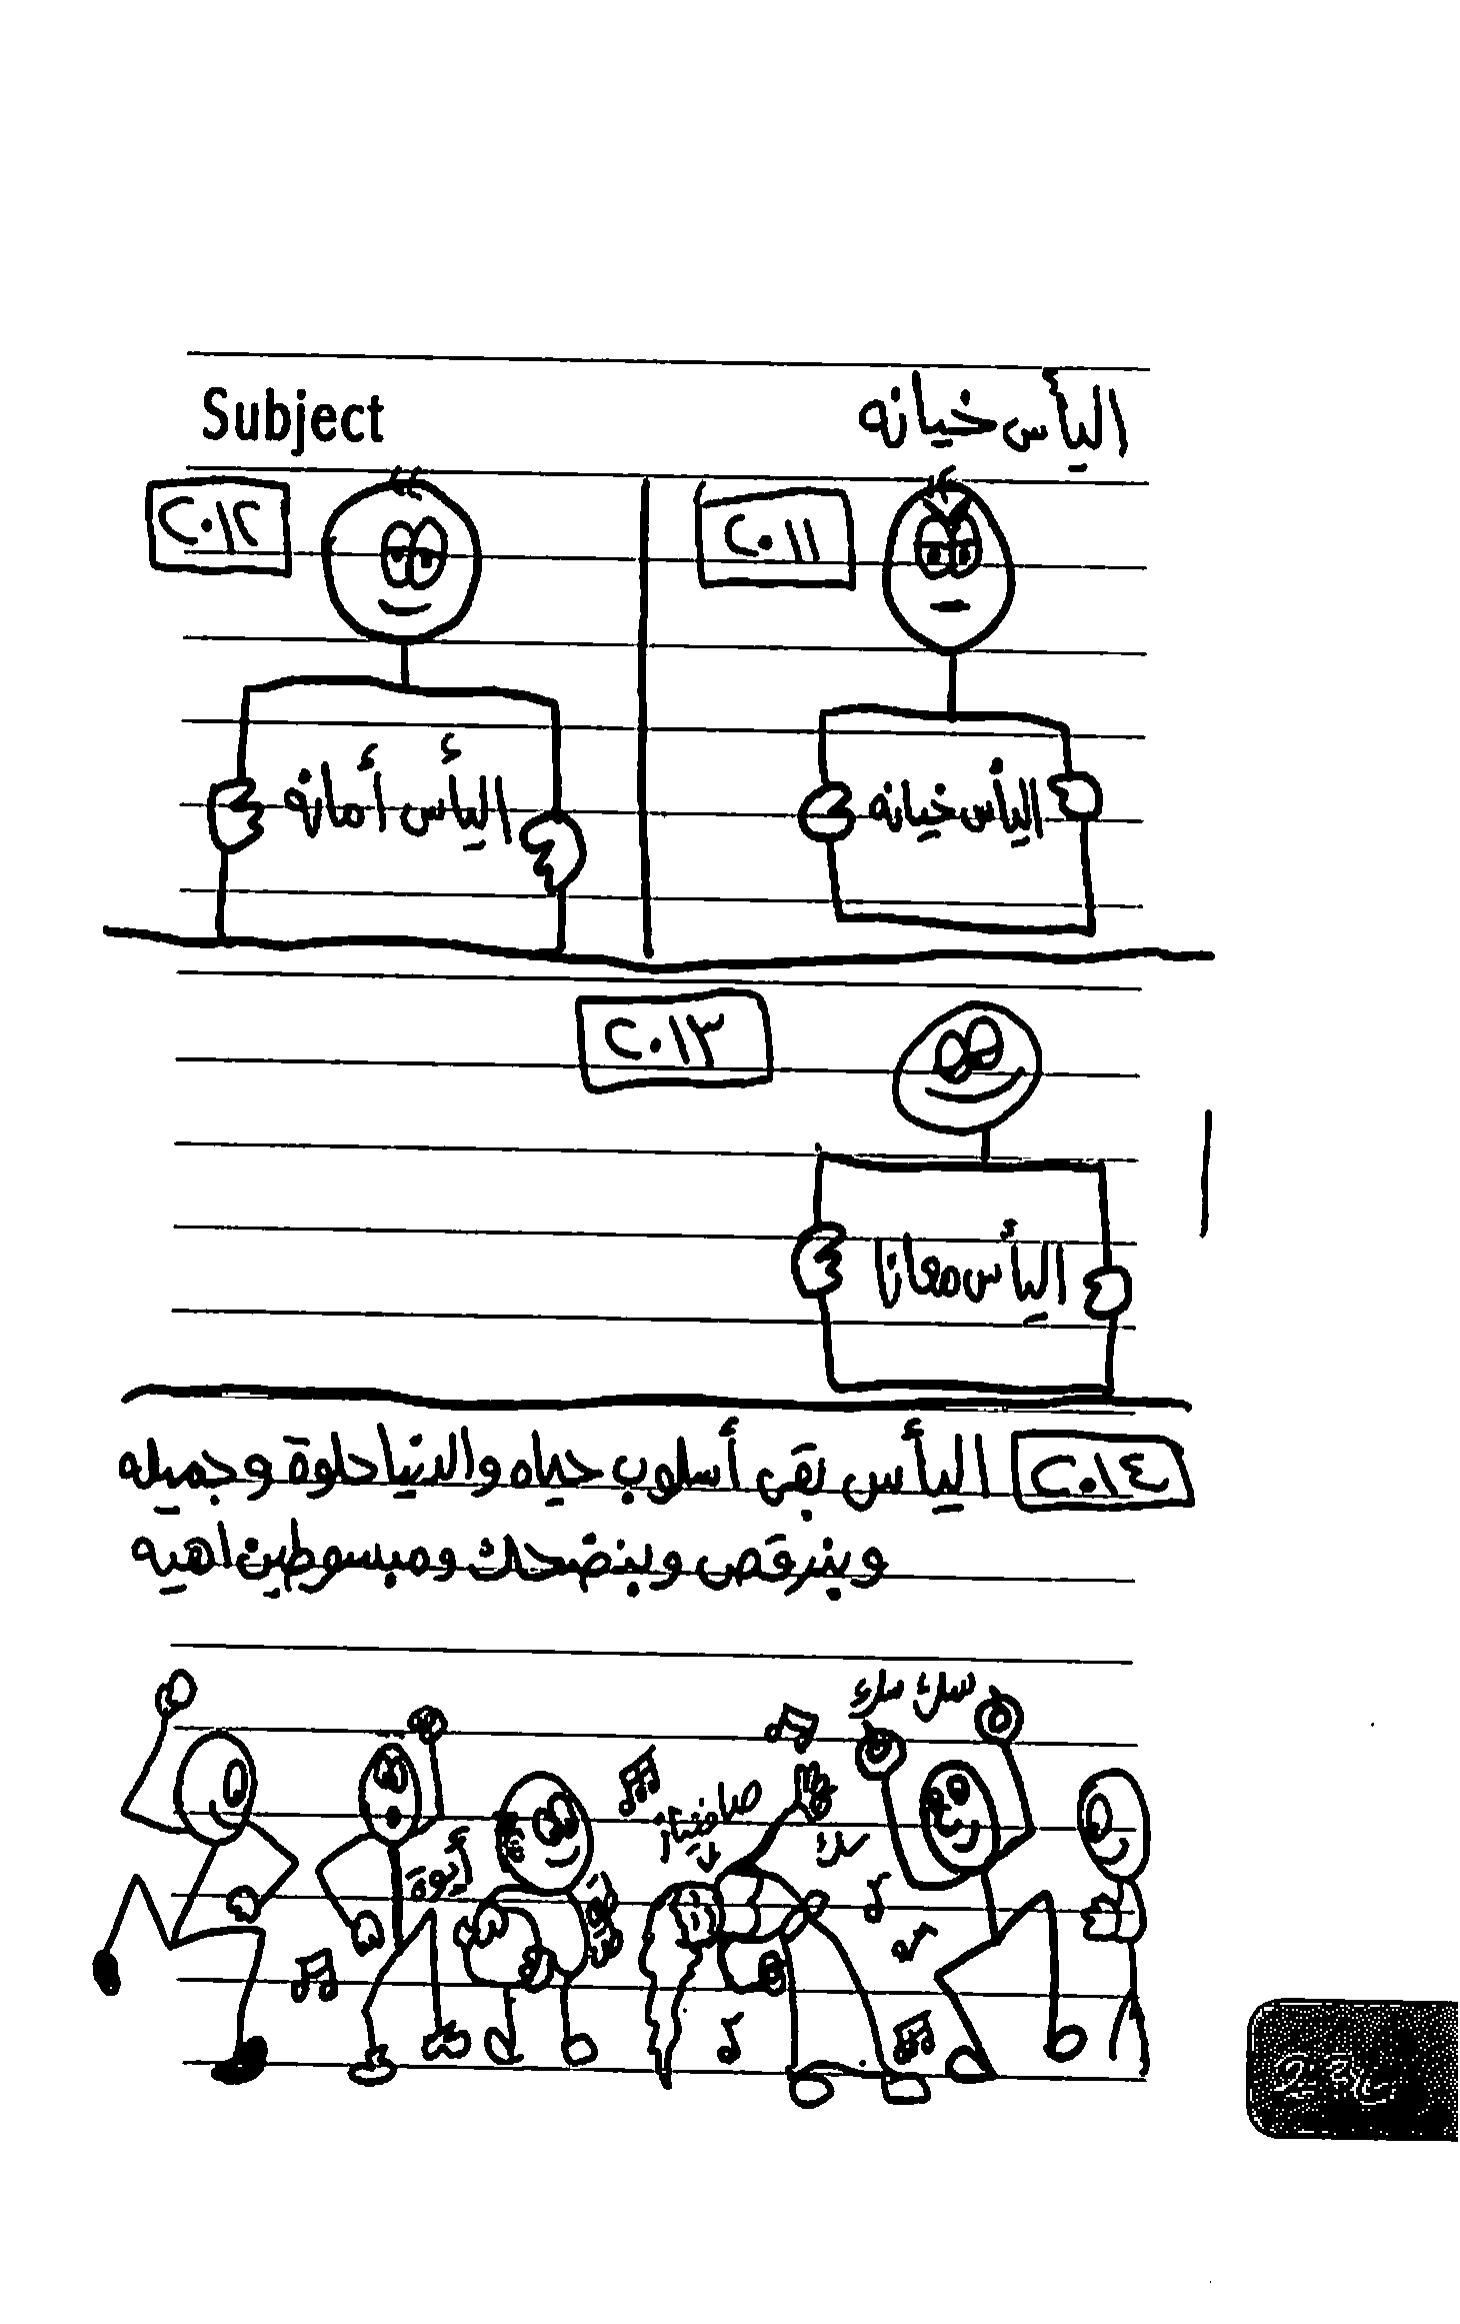 Subject
اليأس خيانه
٢٠١١
اليأس خيانه
٢٠١٢
اليأس أمانه
٢٠١٣
اليأس معانا
٢٠١٤
اليأس بقى أسلوب حياه والدنيا حلوة وجميله
وبنرقص وبنضحك ومبسوطين اهيه
أيوة